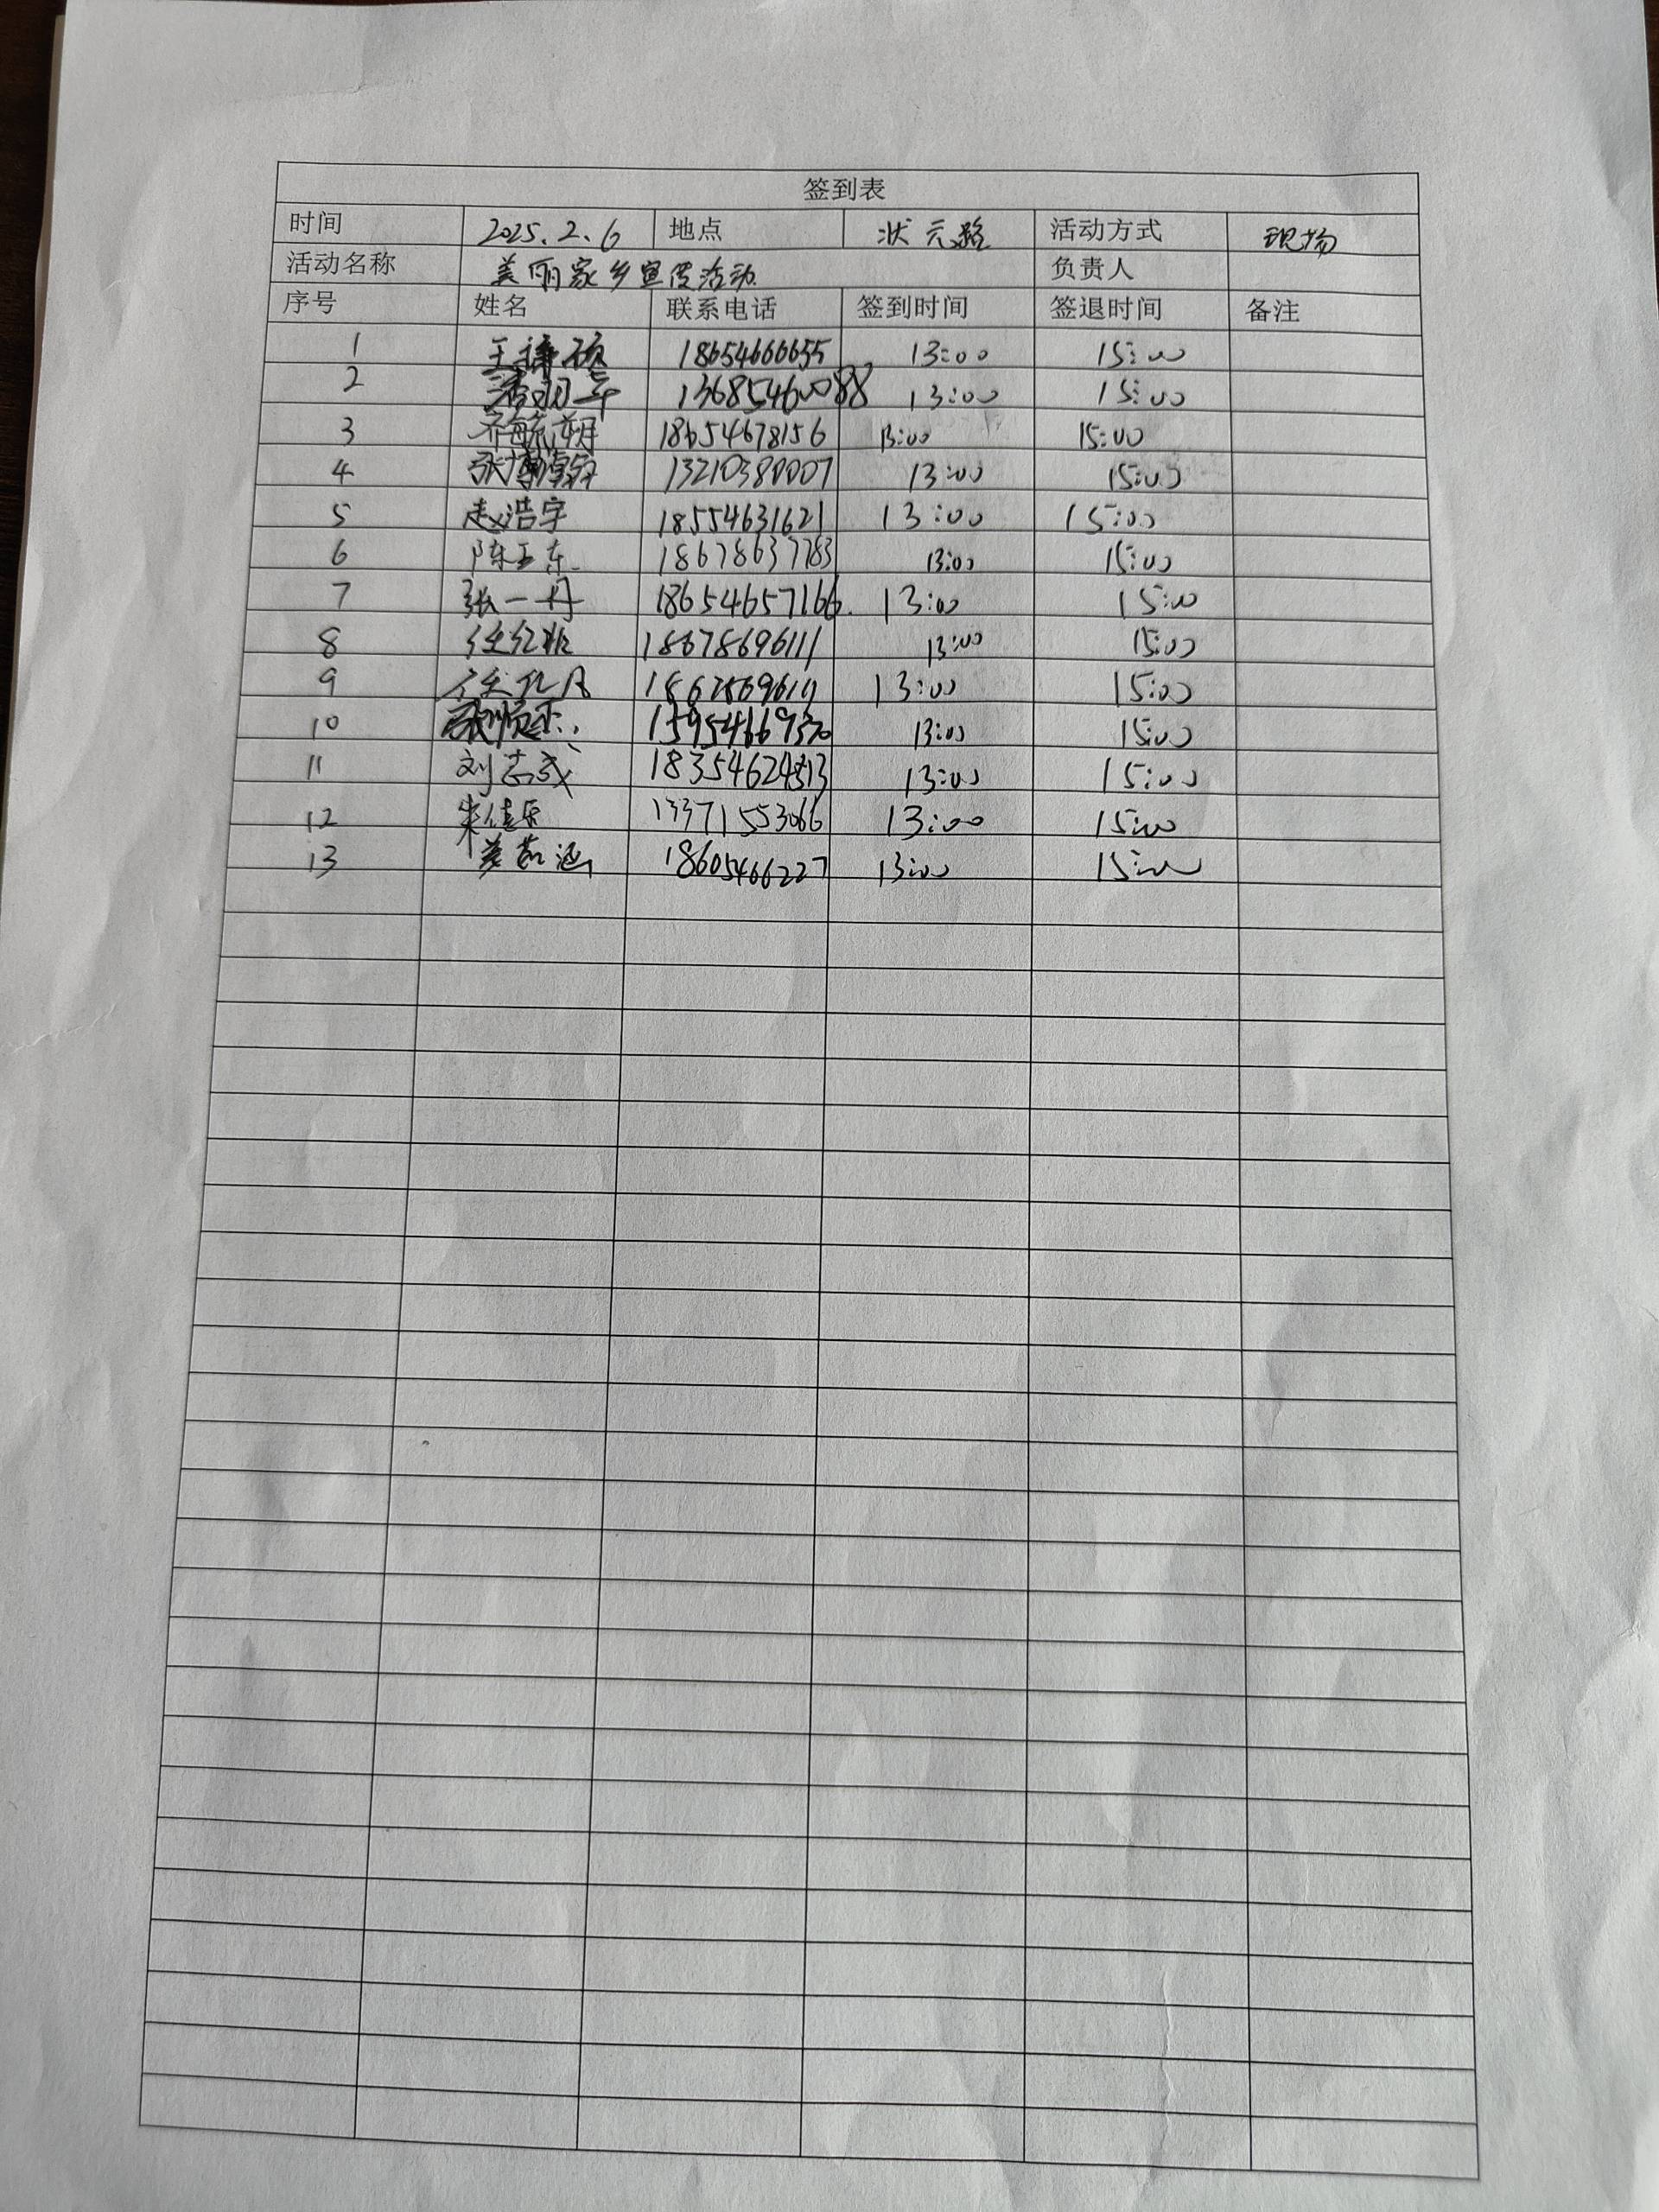 签到表
时间 2025.2.6 地点 状元路 活动方式 现场
活动名称 美丽家乡宣传活动 负责人
序号 姓名 联系电话 签到时间 签退时间 备注
1 王 硕 18654666655 13:00 15:00
2 13685460088 13:00 15:00
3 齐毓朔 18654678156 13:00 15:00
4 张博翰 13210380007 13:00 15:00
5 赵浩宇 18554631621 13:00 15:00
6 陈玉东 18678637783 13:00 15:00
7 张一丹 18654657166. 13:00 15:00
8 任 18678696111 13:00 15:00
9 13:00 15:00
10 15954669370 13:00 15:00
11 刘志成 13:00 15:00
12 朱佳乐 13371553066 13:00 15:00
13 姜茹涵 18605466227 13:00 15:00